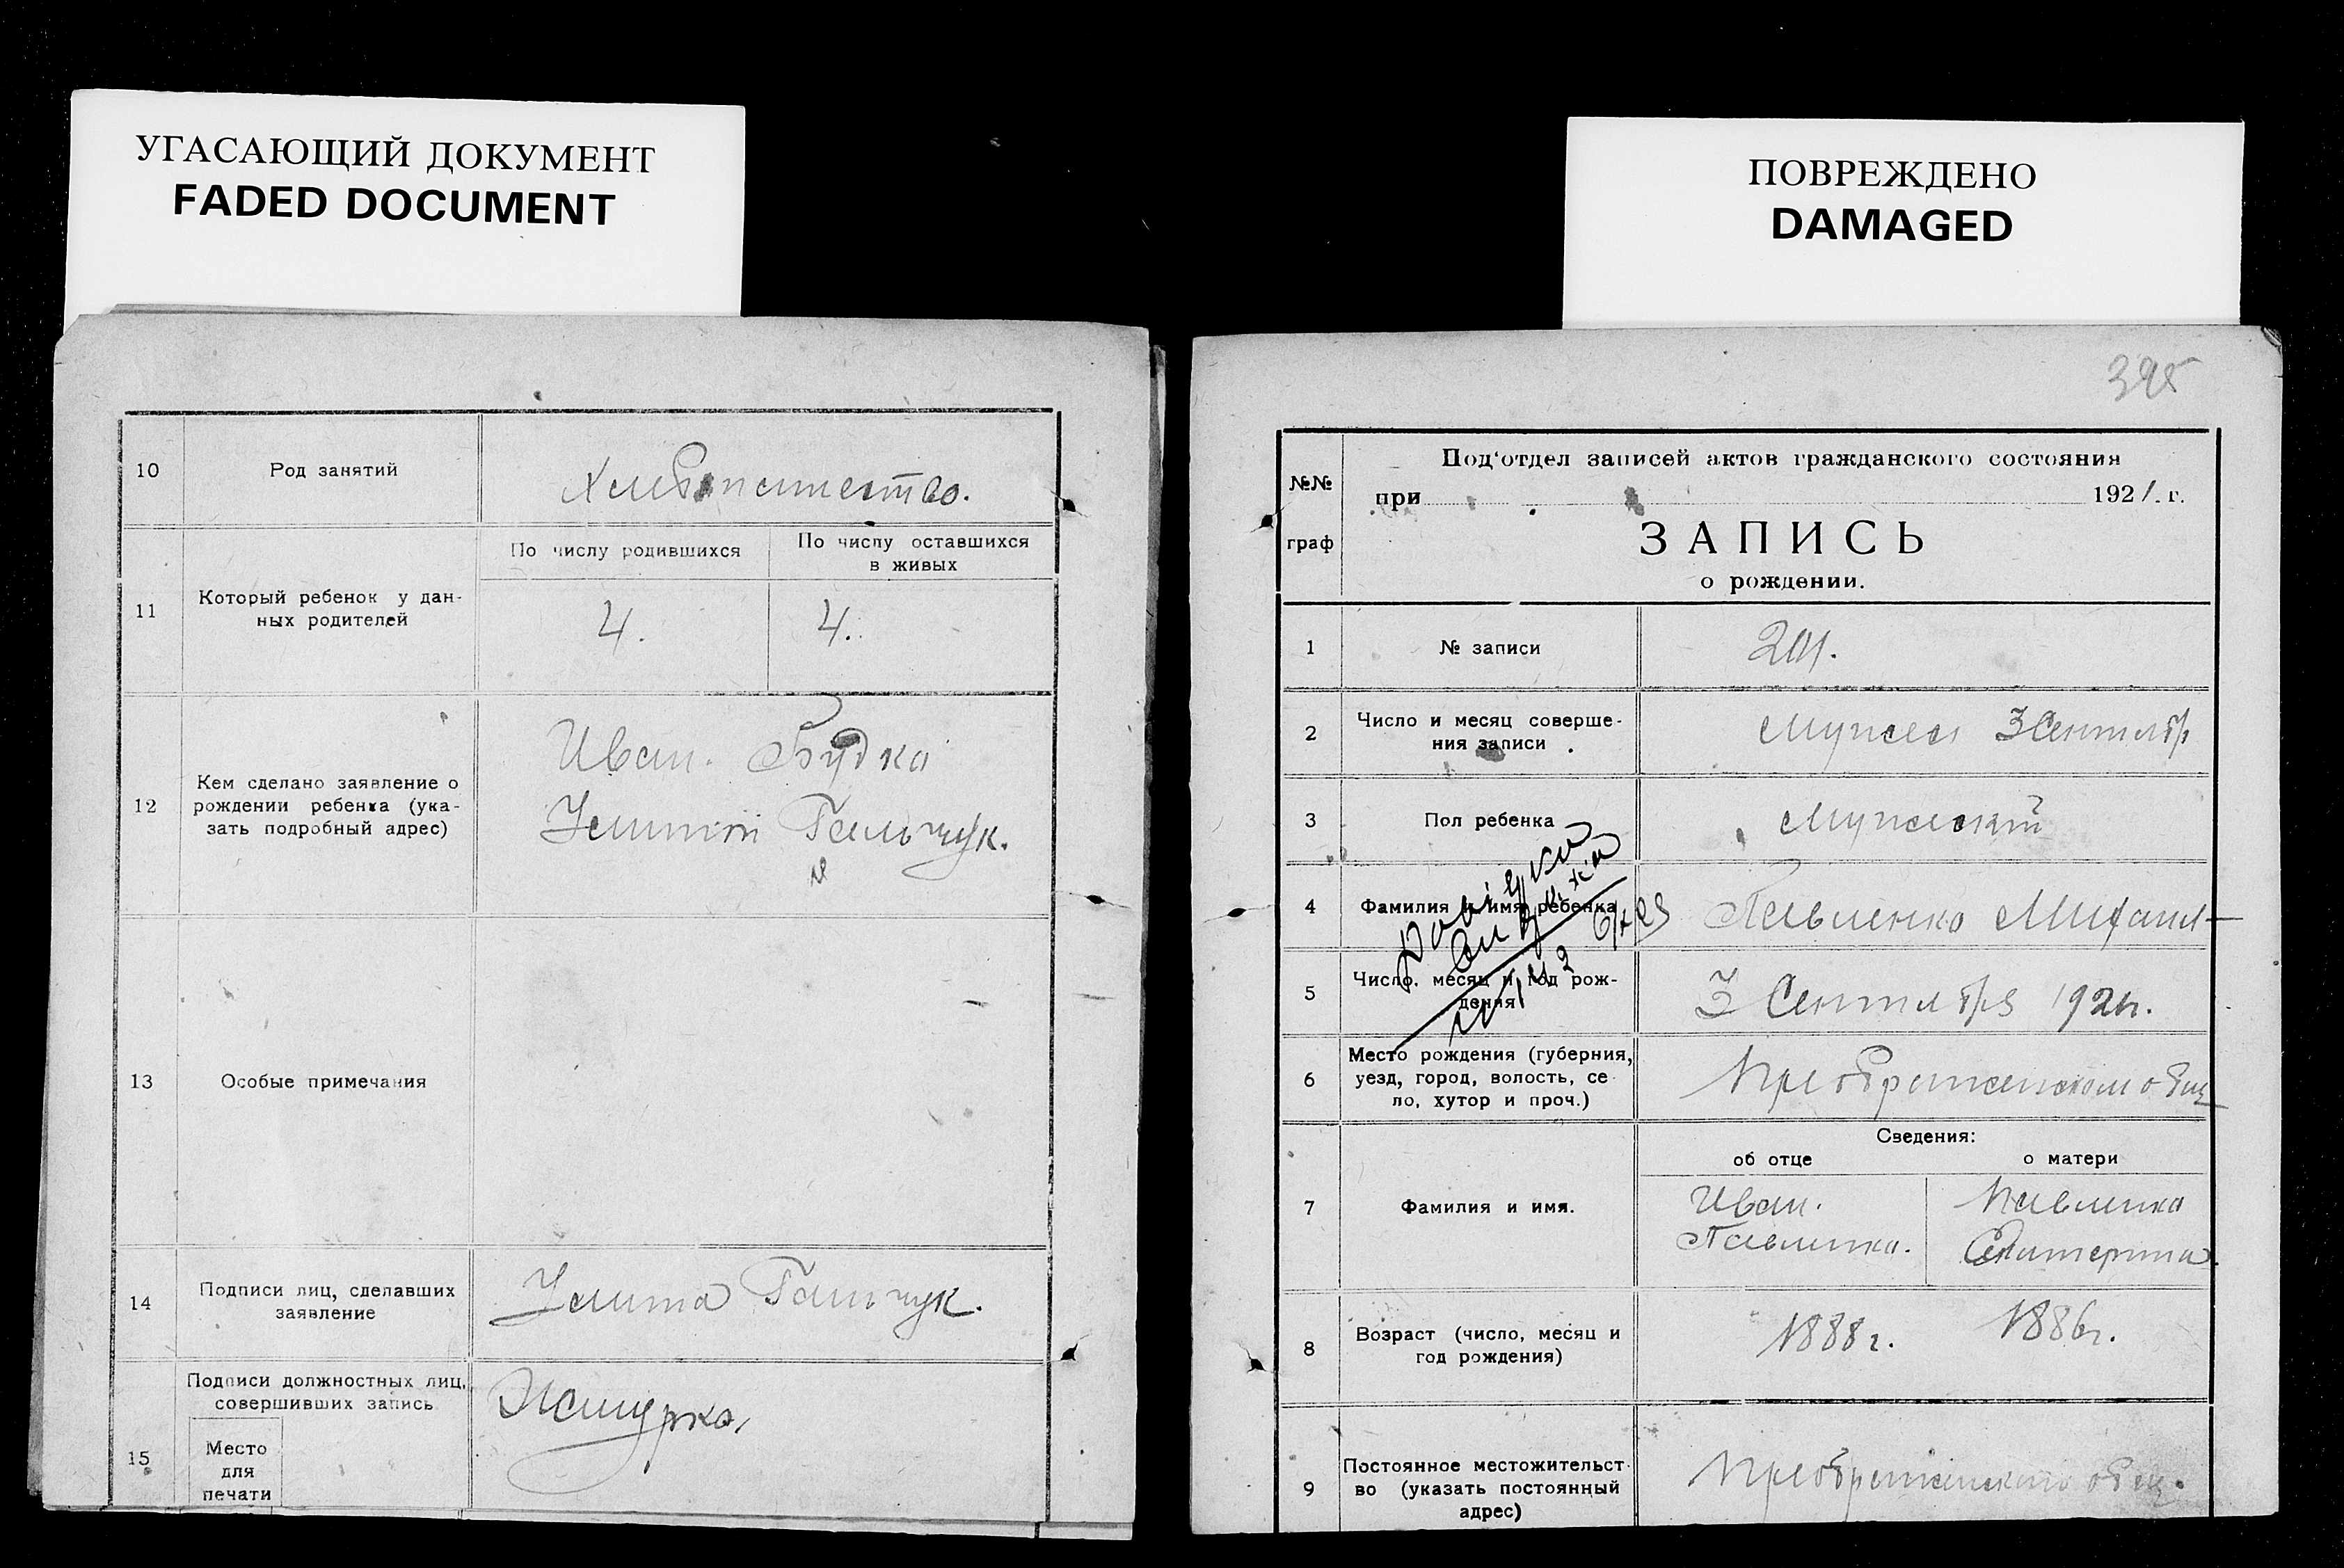 УГАСАЮЩИЙ ДОКУМЕНТ
FADED DOCUMENT
10
Род занятий
Хлебопашество.
11
Который ребенок у дан-
ных родителей
По числу родившихся
4.
По числу оставшихся
в живых
4.
12
Кем сделано заявление о
рождении ребенка (ука-
зать подробный адрес)
Иван. Будка
Гальчук.
13
Особые примечания
14
Подписи лиц, сделавших
заявление
Гальчук.
15
Подписи должностных лиц,
совершивших запись
Место
для
печати
ПОВРЕЖДЕНО
DAMAGED
395
№№
граф
Под'отдел записей актов гражданского состояния
при 1921. г.
ЗАПИСЬ
о рождении.
1
№ записи
201.
2
Число и месяц соверше-
ния записи
3 Сентябр
3
Пол ребенка
Мужский
4
Фамилия и имя ребенка
Павленко Михаил
5
Число, месяц и год рож-
дения
3 Сентября 1921г.
6
Место рождения (губерния,
уезд, город, волость, се-
ло, хутор и проч.)
Преображенском общ
7
Фамилия и имя.
Сведения:
об отце
Иван.
Павленко.
о матери
Павленко
Екатерина.
8
Возраст (число, месяц и
год рождения)
1888г.
1886г.
9
Постоянное местожительст-
во (указать постоянный
адрес)
Преображенского общ.